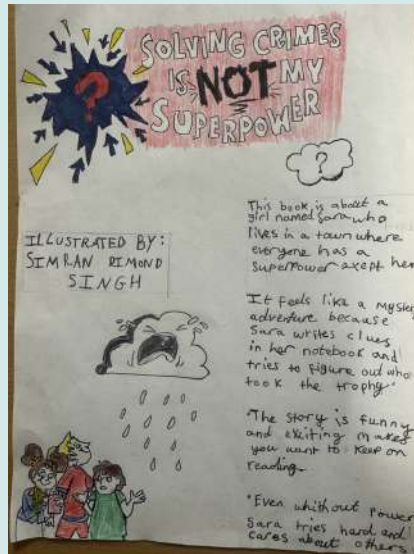 SOLVING CRIMES
IS NOT MY
SUPERPOWER
?
?
ILLUSTRATED BY:
SIMRAN DIMOND
SINGH
This book is about a
girl named Sara who
lives in a town where
everyone has a
superpower exept her
It feels like a mystery
adventure because
Sara writes clues
in her notebook and
tries to figure out who
took the trophy"
"The story is funny
and exciting makes
you want to keep on
reading.
"Even whithout power
Sara tries hard and
cares about others